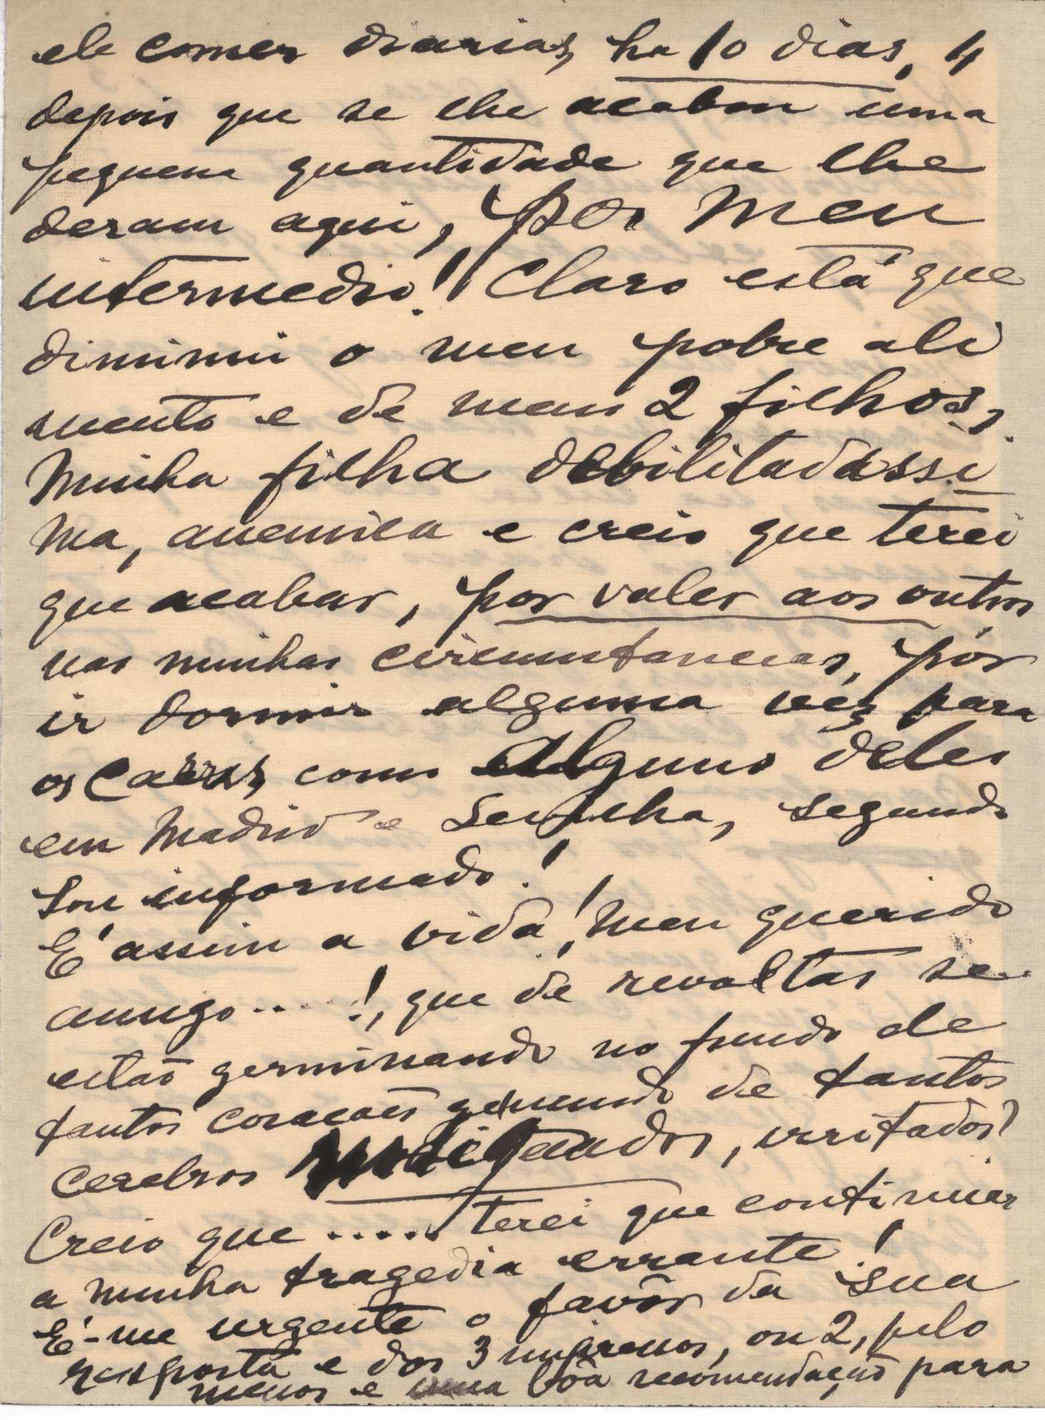 de comer diarias, ha 10 dias, 4
depois que se lhe acabou uma
pequena quantidade que lhe
deram aqui, por meu
intermedio! Claro está que
diminui o meu pobre ali
mento e de meus 2 filhos,
Minha filha debilitadissi
ma, anemica e creio que terei
que acabar, por valer aos outros
nas minhas circumstancias, pór
ir dormir alguma vez para
os caes, como alguns deles
em Madrid e Sevilha, segundo
sou informado!
É assim a vida! Meu querido
amigo....!, que de revoltas se
estão germinando no fundo de
tantos corações de tantos
cerebros, irritados?
Creio que..... terei que continuar
a minha tragedia errante!
É-me urgente o favôr da sua
resposta e dos 3 numeros, ou 2, pelo
menos e uma bôa recomendação para